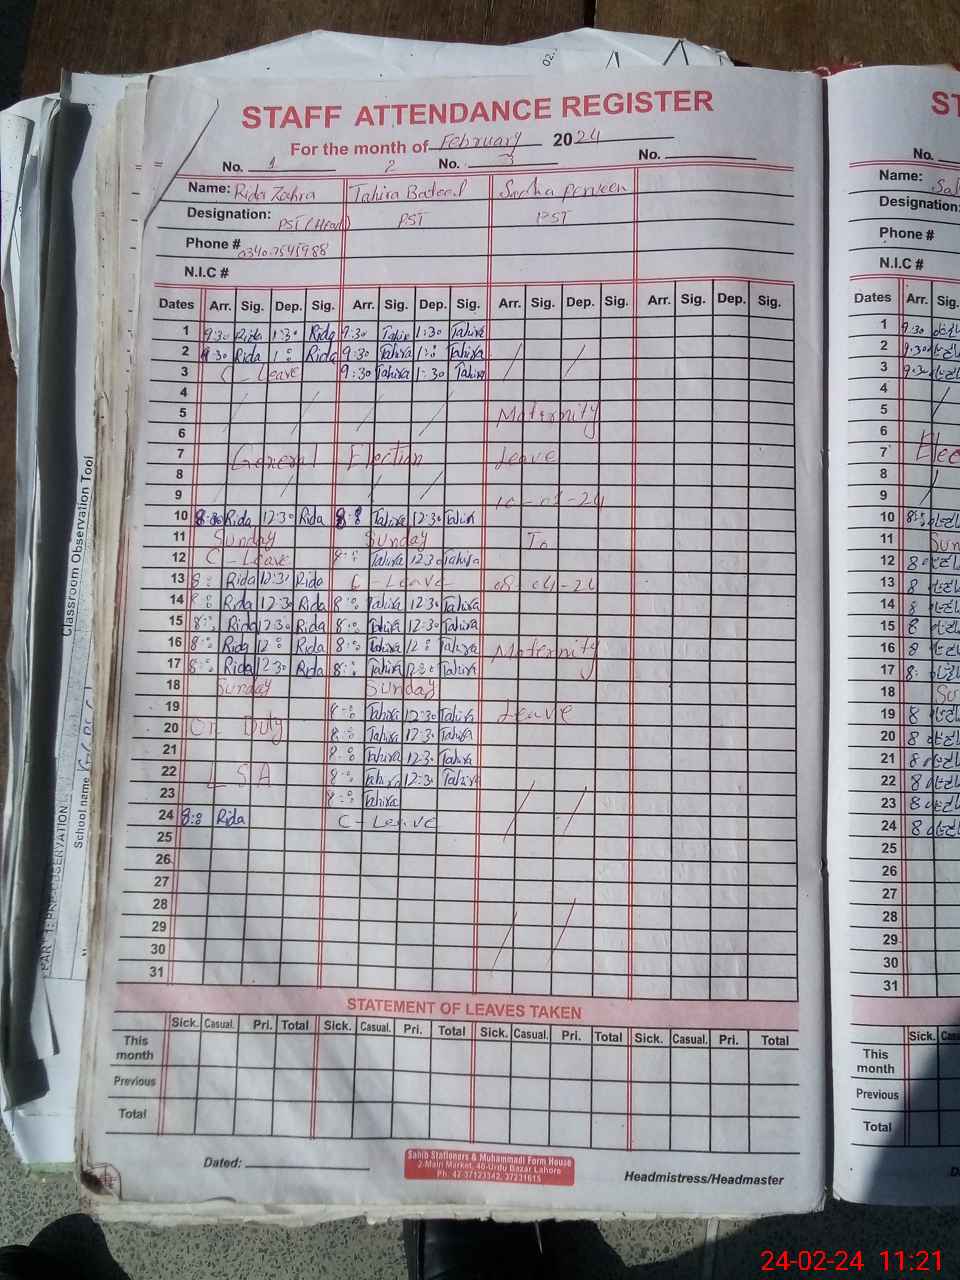 STAFF ATTENDANCE REGISTER
For the month of February 2024
No. 1 2 No. 3 No.
Name: Rida Zahra Tahira Batool Sadha Perveen
Designation: PST (Head) PST PST
Phone # 03407545988
N.I.C #
Dates Arr. Sig. Dep. Sig. Arr. Sig. Dep. Sig. Arr. Sig. Dep. Sig. Arr. Sig. Dep. Sig.
1 9:30 Rida 1:30 Rida 9:30 Tahira 1:30 Tahira
2 9:30 Rida 1:00 Rida 9:30 Tahira 1:00 Tahira
3 C-Leave 9:30 Tahira 1:30 Tahira
4
5 Maternity
6
7 General Election Leave
8
9 10-01-24
10 8:30 Rida 12:30 Rida 8:00 Tahira 12:30 Tahira
11 Sunday Sunday To
12 C-Leave 8:00 Tahira 12:30 Tahira
13 8:00 Rida 12:30 Rida C-Leave 08-04-24
14 8:00 Rida 12:30 Rida 8:00 Tahira 12:30 Tahira
15 8:00 Rida 12:30 Rida 8:00 Tahira 12:30 Tahira
16 8:00 Rida 12:00 Rida 8:00 Tahira 12:00 Tahira Maternity
17 8:00 Rida 12:30 Rida 8:00 Tahira 12:30 Tahira
18 Sunday Sunday
19 8:00 Tahira 12:30 Tahira Leave
20 On Duty 8:00 Tahira 12:30 Tahira
21 8:00 Tahira 12:30 Tahira
22 LSA 8:00 Tahira 12:30 Tahira
23 8:00 Tahira
24 8:00 Rida C-Leave
25
26
27
28
29
30
31
STATEMENT OF LEAVES TAKEN
Sick. Casual. Pri. Total Sick. Casual. Pri. Total Sick. Casual. Pri. Total Sick. Casual. Pri. Total
This month
Previous
Total
Dated:
Sahib Stationers & Muhammadi Form House
2-Main Market, 40-Urdu Bazar Lahore
Ph. 42-37123342, 37231615
Headmistress/Headmaster
Classroom Observation Tool
School name
ST
No.
Name:
Designation:
Phone #
N.I.C #
Dates Arr. Sig.
1 9:30
2 9:30
3 9:30
4
5
6
7 Elec
8
9
10 8:
11 Sun
12 8
13 8
14 8
15 8
16 8
17 8
18 Su
19 8
20 8
21 8
22 8
23 8
24 8
25
26
27
28
29
30
31
Sick.
This month
Previous
Total
24-02-24 11:21